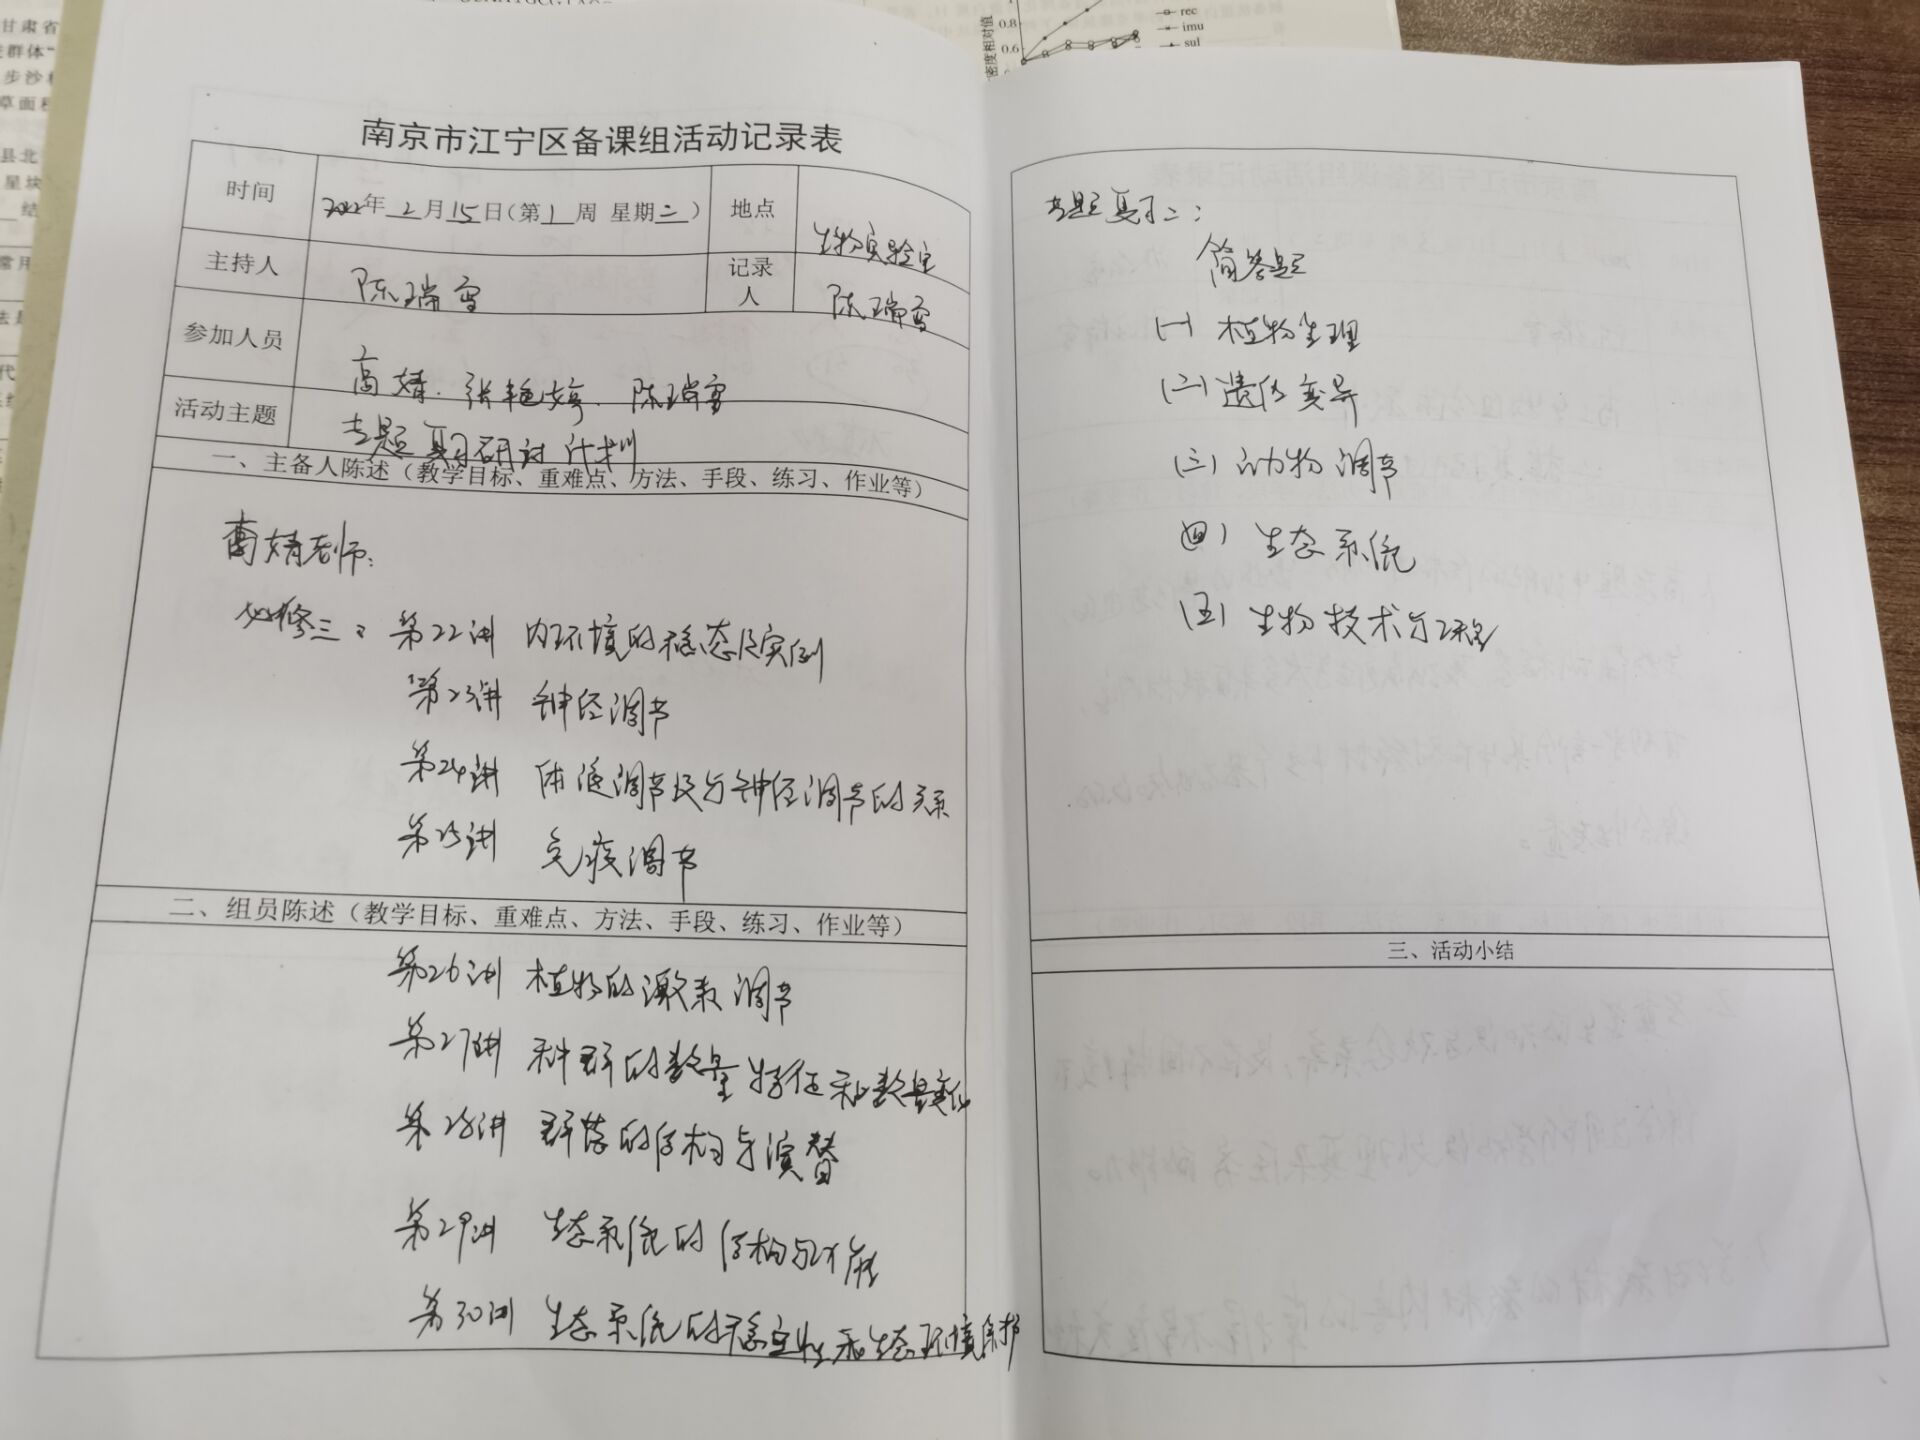 南京市江宁区备课组活动记录表
时间 2022年 2月 15日(第 1 周 星期 二 ) 地点 生物实验室
主持人 陈瑞雪 记录人 陈瑞雪
参加人员 高婧. 张艳婷. 陈瑞雪
活动主题 专题复习研讨计划
一、主备人陈述（教学目标、重难点、方法、手段、练习、作业等）
高婧老师:
必修三: 第22讲 内环境的稳态及实例
第23讲 神经调节
第24讲 体液调节及与神经调节的关系
第25讲 免疫调节
二、组员陈述（教学目标、重难点、方法、手段、练习、作业等）
第26讲 植物的激素调节
第27讲 种群的数量特征和数量变化
第28讲 群落的结构与演替
第29讲 生态系统的结构与功能
第30讲 生态系统的稳定性和生态环境保护
专题复习二:
简答题
(一) 植物生理
(二) 遗传变异
(三) 动物调节
(四) 生态系统
(五) 生物技术与工程
三、活动小结
甘肃省
群体"
步沙
草面积
县北
星块
结
常用
0.8
0.6
密度相对值
rec
imu
sul